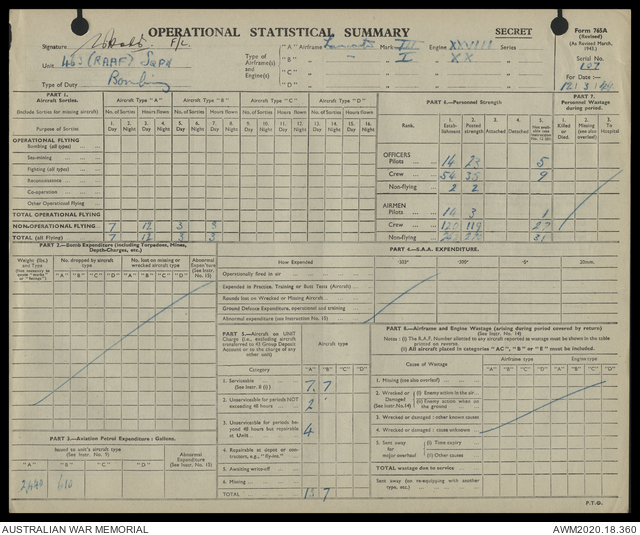 OPERATIONAL STATISTICAL SUMMARY
SECRET
Form 765A
(Revised)
(As Revised March, 1943)
Signature F/L.
Unit 463 (RAAF) Sqdn
Type of Duty Bombing
Type of Airframe(s) and Engine(s)
"A" Airframe Lancaster Mark III Engine XXVIII Series
"B" " I XX
"C"
"D"
Serial No.
For Date :—
12/3/44
PART 1.
Aircraft Sorties.
(Include Sorties for missing aircraft)
Aircraft Type "A" Aircraft Type "B" Aircraft Type "C" Aircraft Type "D"
No. of Sorties Hours flown No. of Sorties Hours flown No. of Sorties Hours flown No. of Sorties Hours flown
Purpose of Sorties
1. Day 2. Night 3. Day 4. Night 5. Day 6. Night 7. Day 8. Night 9. Day 10. Night 11. Day 12. Night 13. Day 14. Night 15. Day 16. Night
OPERATIONAL FLYING
Bombing (all types)
Sea-mining
Fighting (all types)
Reconnaissance
Co-operation
Other Operational Flying
TOTAL OPERATIONAL FLYING
NON-OPERATIONAL FLYING 7 12 3 3
TOTAL (all Flying) 7 12 3 3
PART 6.—Personnel Strength
PART 7.
Personnel Wastage during period.
Rank.
1. Establishment 2. Posted strength 3. Attached 4. Detached 5. Non available
1. Killed or Died. 2. Missing (see also overleaf) 3. To Hospital
OFFICERS
Pilots 14 23 5
Crew 54 35 9
Non-flying 2 2
AIRMEN
Pilots 14 3 1
Crew 120 119 27
Non-flying 31
PART 2.—Bomb Expenditure (including Torpedoes, Mines, Depth-Charges, etc.)
Weight (lbs.) and Type
No. dropped by aircraft type
No. lost on missing or wrecked aircraft type
Abnormal Expen'ture (See Instr. No. 15)
"A" "B" "C" "D" "A" "B" "C" "D"
PART 4.—S.A.A. EXPENDITURE.
How Expended
·303" ·300" ·5" 20mm.
Operationally fired in air
Expended in Practice, Training or Butt Tests (Aircraft)
Rounds lost on Wrecked or Missing Aircraft
Ground Defence Expenditure, operational and training
Abnormal expenditure (see Instruction No. 15)
PART 5.—Aircraft on UNIT Charge (i.e., excluding aircraft transferred to 43 Group Deposit Account or to the charge of any other unit)
Aircraft type
Category
"A" "B" "C" "D"
1. Serviceable (See Instr. 8 (i) ) 7 7
2. Unserviceable for periods NOT exceeding 48 hours 2
3. Unserviceable for periods beyond 48 hours but repairable at Unit 4
4. Repairable at depot or contractors, e.g., "fly-ins."
5. Awaiting write-off
6. Missing
TOTAL 13 7
PART 8.—Airframe and Engine Wastage (arising during period covered by return)
(See Instr. No. 14)
Notes : (i) The R.A.F. Number allotted to any aircraft reported as wastage must be shown in the table printed on reverse.
(ii) All aircraft placed in categories "AC", "B" or "E" must be included.
Cause of Wastage
Airframe type Engine type
"A" "B" "C" "D" "A" "B" "C" "D"
1. Missing (see also overleaf)
2. Wrecked or Damaged (See Instr. No.14)
(i) Enemy action in the air
(ii) Enemy action when on the ground
3. Wrecked or damaged : other known causes
4. Wrecked or damaged : cause unknown
5. Sent away for major overhaul
(i) Time expiry
(ii) Other causes
TOTAL wastage due to service
Sent away (on re-equipping with another type, etc.)
PART 3.—Aviation Petrol Expenditure : Gallons.
Issued to unit's aircraft type (See Instr. No. 9)
Abnormal Expenditure (See Instr. No. 15)
"A" "B" "C" "D"
2440 610
P.T.O.
AUSTRALIAN WAR MEMORIAL
AWM2020.18.360